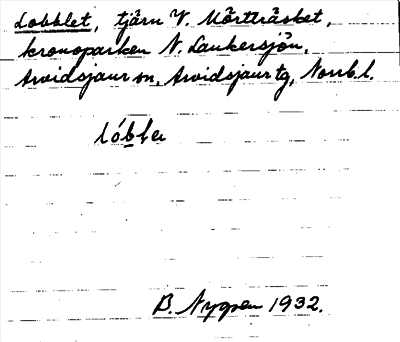 Lobblet, tjärn V. Mörtträsket,
kronoparken N. Laukersjön,
Arvidsjaur sn, Arvidsjaur tg, Norrb. l.
lóbbla
B. Nygren 1932.